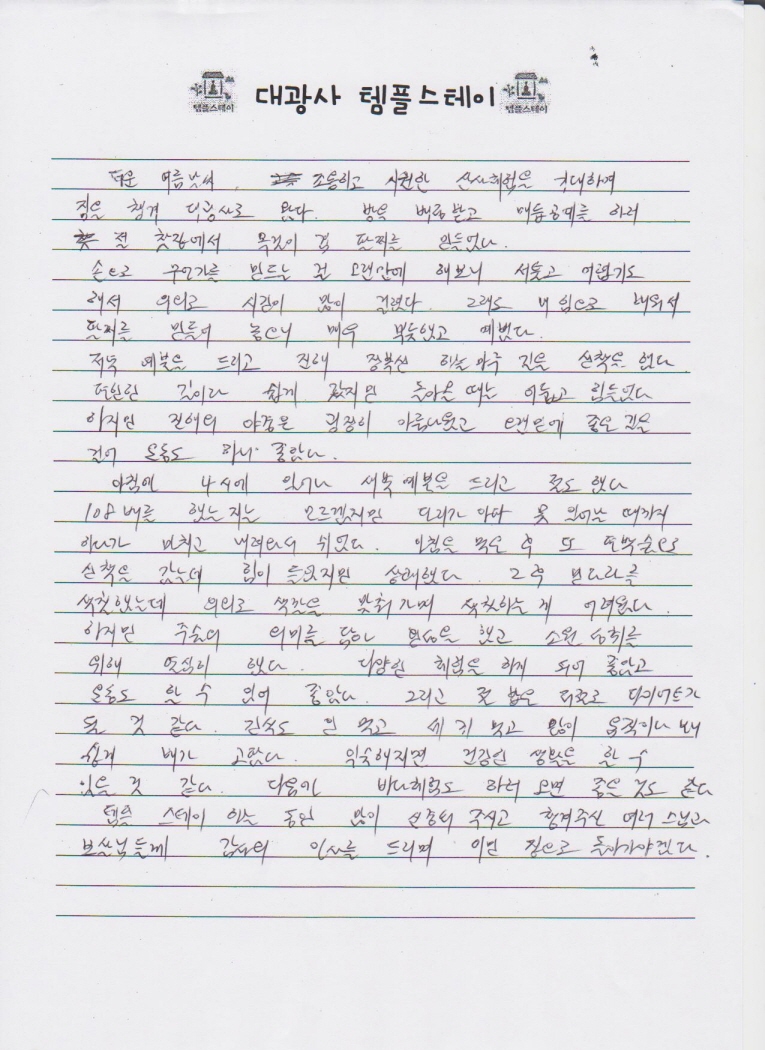 템플스테이 대광사 템플스테이 템플스테이
더운 여름날씨, 조용하고 시원한 산사체험을 기대하며
짐을 챙겨 대광사로 왔다. 방을 배정받고 매듭공예를 하러
절 찻집에서 목걸이 겸 팔찌를 만들었다.
손으로 무언가를 만드는 걸 오랜만에 해보니 서툴고 어렵기도
해서 의외로 시간이 많이 걸렸다. 그래도 내 힘으로 배워서
팔찌를 만들어 놓으니 매우 뿌듯했고 예뻤다.
저녁 예불을 드리고 진해 장복산 하늘마루 길을 산책을 했다.
편한 길이라 쉽게 갔지만 돌아올 때는 어둡고 힘들었다
하지만 진해의 야경은 굉장히 아름다웠고 오랜만에 좋은 길을
걸어 운동도 하니 좋았다.
아침에 4시에 일어나 새벽예불을 드리고 절도 했다
108배를 했는지는 모르겠지만 다리가 아파 못 일어날 때까지
하다가 마치고 내려와서 쉬었다. 아침을 먹은 후 또 산책을
갔는데 힘이 들었지만 상쾌했다. 그 후 만다라를
색칠했는데 의외로 색깔을 맞춰가며 색칠하는 게 어려웠다.
하지만 주술의 의미를 담아 완성을 했고 소원 성취를
위해 열심히 했다. 다양한 체험을 하게 되어 좋았고
운동도 할 수 있어 좋았다. 그리고 절 밥은 최고로 다이어트가
될 것 같다. 간식도 안 먹고 세 끼 먹고 많이 움직이다 보니
쉽게 배가 고팠다. 익숙해지면 건강한 생활을 할 수
있을 것 같다. 다음에 바다체험도 하러 오면 좋을 것도 같다
템플 스테이 하는 동안 많이 신경써 주시고 챙겨주신 여러 스님과
보살님들께 감사의 인사를 드리며 이만 집으로 돌아가야겠다.